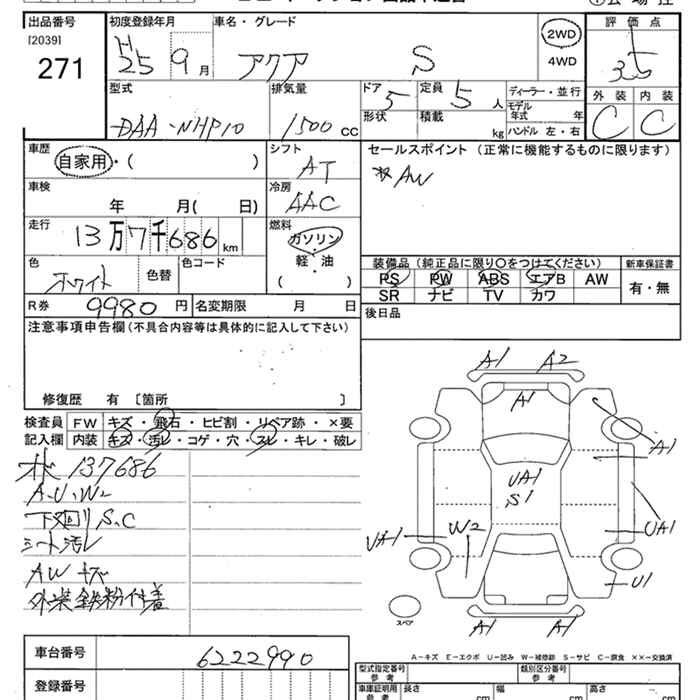 出品番号 初度登録年月 車名・グレード 2WD 評価点
[2039] H25 9月 アクア S 4WD 3.5
271
型式 排気量 ドア 定員 ディーラー・並行 外装 内装
DAA-NHP10 1500cc 5 5人 モデル年式 年 C C
形状 積載 kg ハンドル 左・右
車歴 シフト セールスポイント (正常に機能するものに限ります)
自家用・( ) AT AW
車検 冷房
年 月( 日) AAC
走行 燃料
13万7千686km ガソリン
軽・油
( )
色 色替 色コード 装備品(純正品に限り○をつけてください) 新車保証書
ホワイト PS PW ABS エアB AW 有・無
SR ナビ TV カワ
R券 9980円 名変期限 月 日 後日品
注意事項申告欄(不具合内容等は具体的に記入して下さい)
修復歴 有 [箇所 ]
検査員 FW キズ・飛石・ヒビ割・リペア跡・×要
記入欄 内装 キズ・汚レ・コゲ・穴・スレ・キレ・破レ
137686
A.U.W2
下廻りS.C
シート汚レ
AWキズ
外装鉄粉付着
A1 A2
A1
A1
UA1
S1
W2
UA1 UA1
U1
スペア
A1 A1
A-キズ E-エクボ U-凹み W-補修跡 S-サビ C-腐食 ××-交換済
車台番号 6222990
登録番号
型式指定番号 類別区分番号
参考 参考
車庫証明用 長さ 幅 高さ
参考 cm cm cm